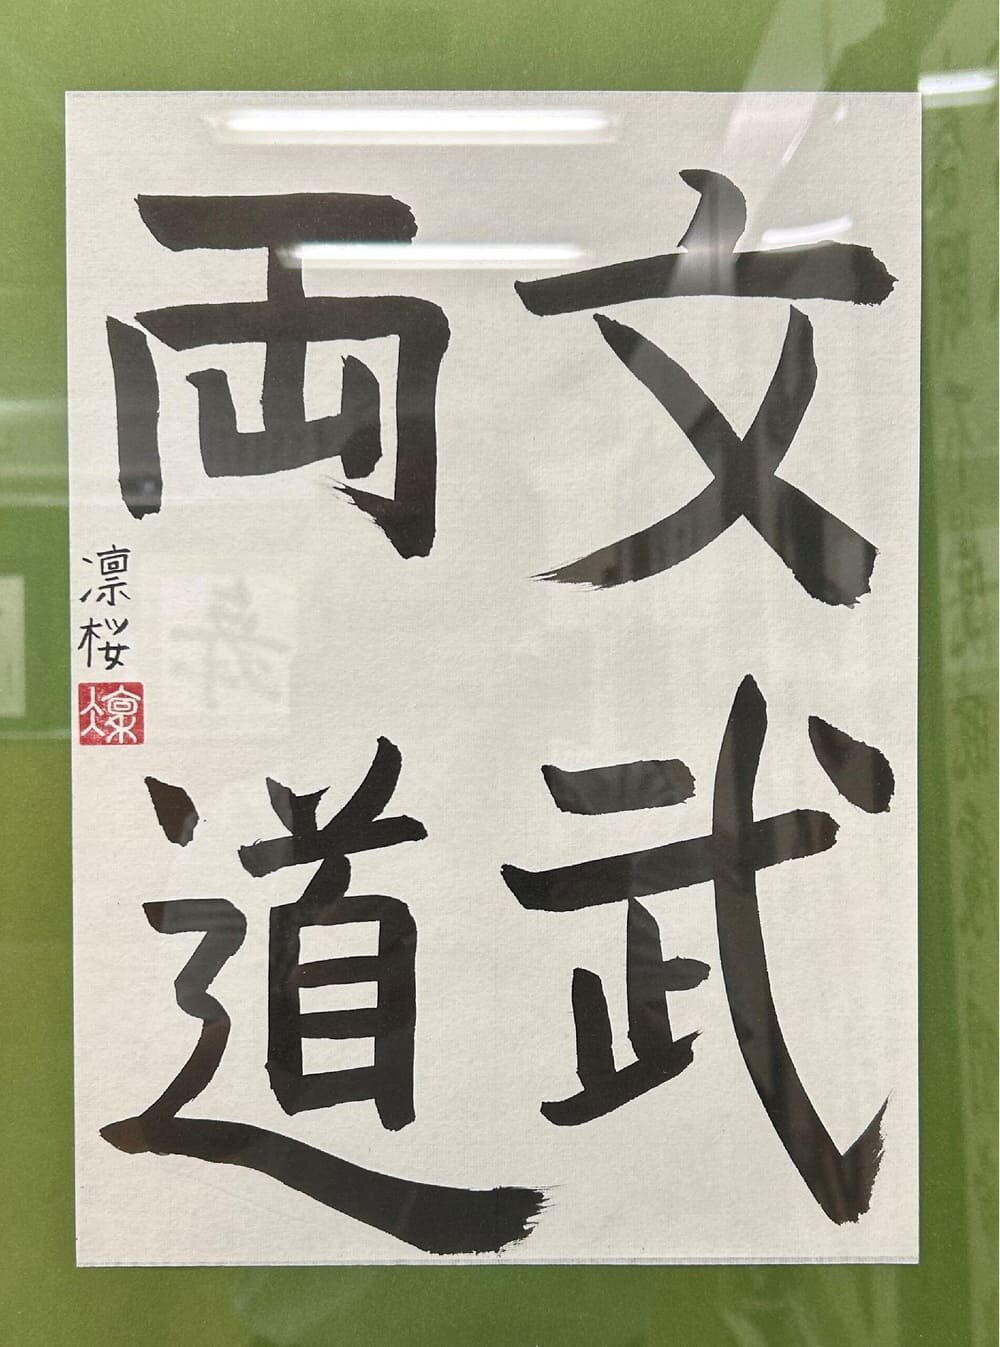 文武
両道
凛桜
凛